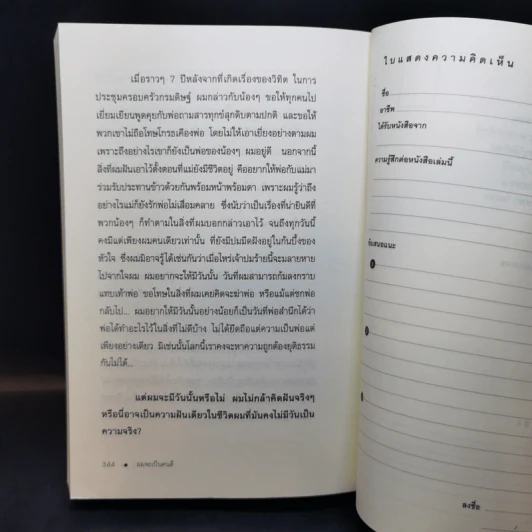 เมื่อราวๆ 7 ปีหลังจากที่เกิดเรื่องของวิทิต ในการ
ประชุมครอบครัวกรมดิษฐ์ ผมกล่าวกับน้องๆ ขอให้ทุกคนไป
เยี่ยมเยียนพูดคุยกับพ่อถามสารทุกข์สุกดิบตามปกติ และขอให้
พวกเขาไม่ถือโทษโกรธเคืองพ่อ โดยไม่ให้เอาเยี่ยงอย่างตามผม
เพราะถึงอย่างไรเขาก็ยังเป็นพ่อของน้องๆ ผมอยู่ดี นอกจากนี้
สิ่งที่ผมฝันเอาไว้ตั้งตอนที่แม่ยังมีชีวิตอยู่ คืออยากให้พ่อกับแม่มา
ร่วมรับประทานข้าวด้วยกันพร้อมหน้าพร้อมตา เพราะผมรู้ว่าถึง
อย่างไรแม่ก็ยังรักพ่อไม่เสื่อมคลาย ซึ่งนับว่าเป็นเรื่องที่น่ายินดีที่
พวกน้องๆ ก็ทำตามในสิ่งที่ผมบอกกล่าวเอาไว้ จนถึงทุกวันนี้
คงมีแต่เพียงผมคนเดียวเท่านั้น ที่ยังมีปมมืดฝังอยู่ในก้นบึ้งของ
หัวใจ ซึ่งผมมิอาจรู้ได้เช่นกันว่าเมื่อไหร่เจ้าปมร้ายนี้จะมลายหาย
ไปจากใจผม ผมอยากจะให้มีวันนั้น วันที่ผมสามารถก้มลงกราบ
แทบเท้าพ่อ ขอโทษในสิ่งที่ผมเคยคิดจะฆ่าพ่อ หรือแม้แต่ชกพ่อ
กลับไป... ผมอยากให้มีวันนั้นอย่างน้อยก็เป็นวันที่พ่อสำนึกได้ว่า
พ่อได้ทำอะไรไว้ในสิ่งที่ไม่ดีบ้าง ไม่ได้ยึดถือแต่ความเป็นพ่อแต่
เพียงอย่างเดียว มิเช่นนั้นโลกนี้เราคงจะหาความถูกต้องยุติธรรม
กันไม่ได้...
แต่ผมจะมีวันนั้นหรือไม่ ผมไม่กล้าคิดฝันจริงๆ
หรือนี่อาจเป็นความฝันเดียวในชีวิตผมที่มันคงไม่มีวันเป็น
ความจริง?
344 • ผมจะเป็นคนดี
ใบแสดงความคิดเห็น
ชื่อ
อาชีพ
ได้รับหนังสือจาก
ความรู้สึกต่อหนังสือเล่มนี้
ข้อเสนอแนะ
ลงชื่อ